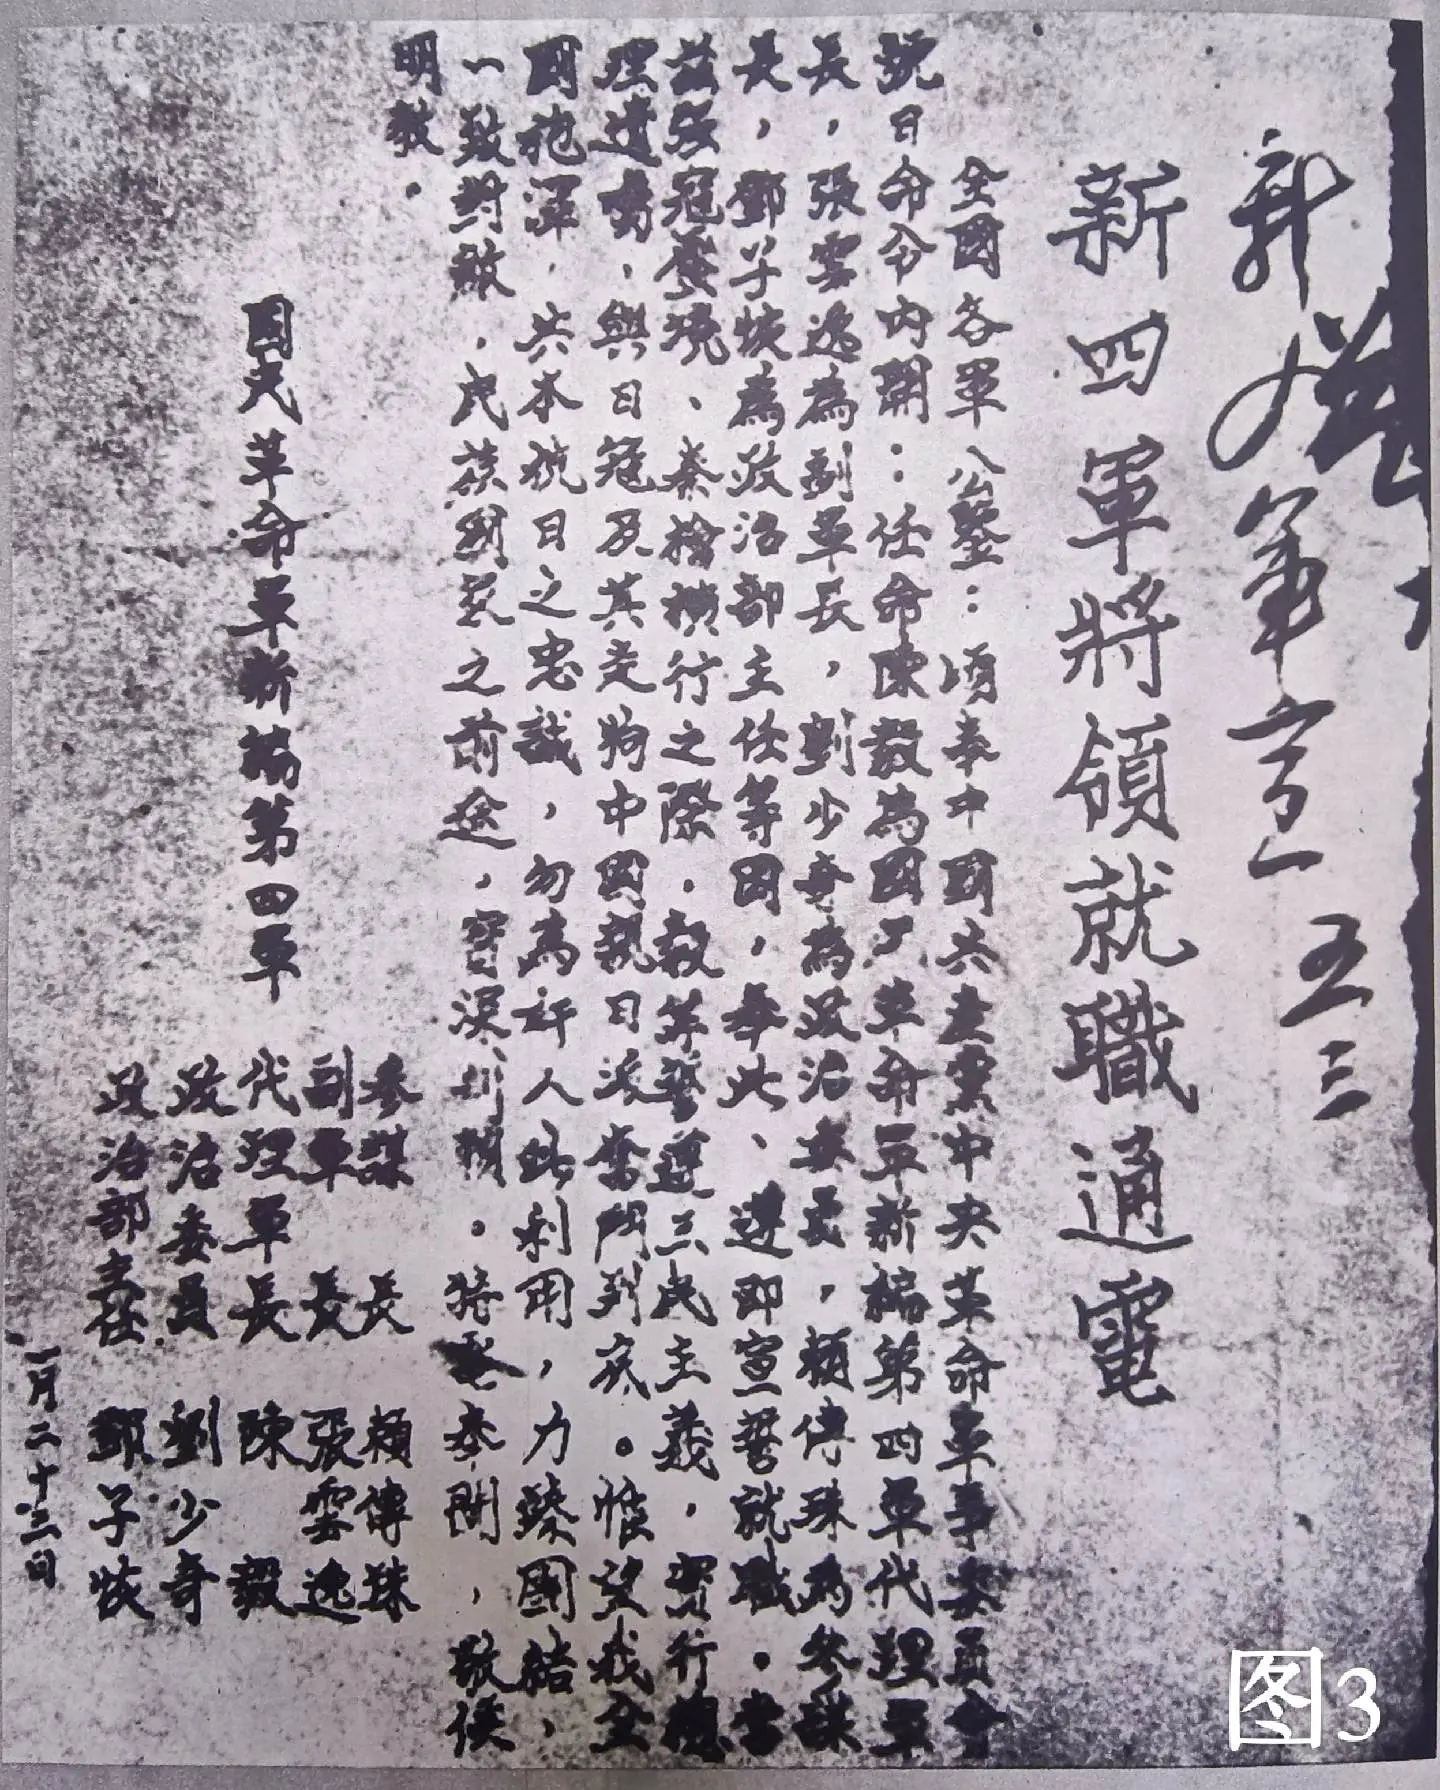 五三
新四軍將領就職通電
全國各軍公鑒：頃奉中國共產黨中央革命軍事委員會
號日命令內開：任命陳毅為國民革命軍新編第四軍代理軍
長，張雲逸為副軍長，劉少奇為政治委員，賴傳珠為參謀
長，鄧子恢為政治部主任等因，奉此、遵即宣誓就職。當
茲張寇壓境、秦檜橫行之際．毅等誓遵三民主義，實行總
理遺囑．與日寇及其走狗中國親日派奮鬥到底。惟望我全
國袍澤．共本抗日之忠誠，勿為奸人所利用，力臻團結，
一致對敵．民族國家之前途．實深利賴。特電奉聞，敬候
明教。
國民革命軍新編第四軍
參謀長 賴傳珠
副軍長 張雲逸
代理軍長 陳毅
政治委員 劉少奇
政治部主任 鄧子恢
一月二十三日
图3